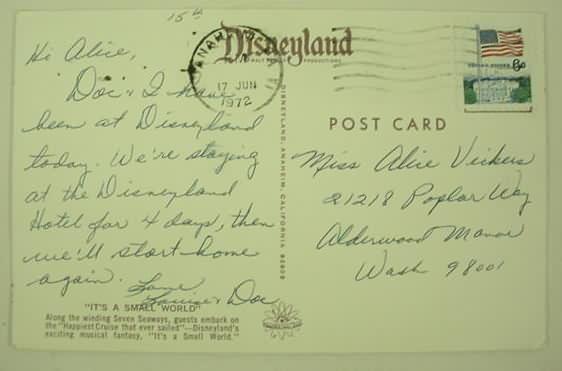 15¢
Hi Alice,
Doc & I have
been at Disneyland
today. We're staying
at the Disneyland
Hotel for 4 days, then
we'll start home
again. Love
Louise & Doc
"IT'S A SMALL WORLD"
Along the winding Seven Seaways, guests embark on
the "Happiest Cruise that ever sailed"—Disneyland's
exciting musical fantasy, "It's a Small World."
Disneyland
WALT DISNEY PRODUCTIONS
ANAHEIM
17 JUN
1972
DISNEYLAND, ANAHEIM, CALIFORNIA 92802
UNITED STATES
6¢
POST CARD
Miss Alice Vickers
21218 Poplar Way
Alderwood Manor
Wash 98001